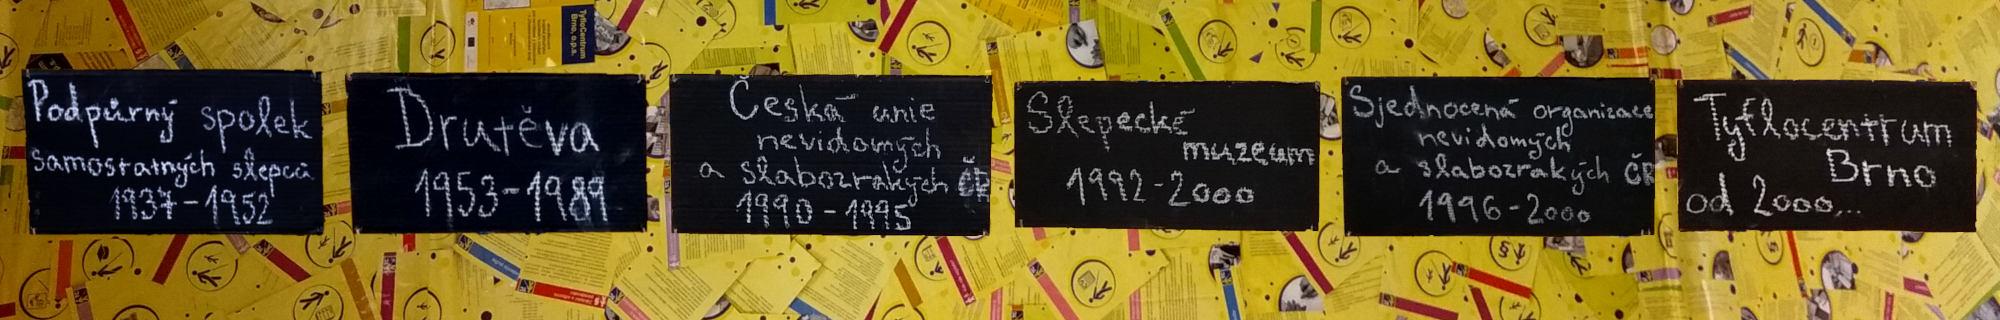 Podpůrný spolek
samostatných slepců
1937-1952
Drutěva
1953-1989
Česká unie
nevidomých
a slabozrakých ČR
1990-1995
Slepecké
muzeum
1992-2000
Sjednocená organizace
nevidomých
a slabozrakých ČR
1996-2000
Tyflocentrum
Brno
od 2000...
TyfloCentrum
Brno, o.p.s.